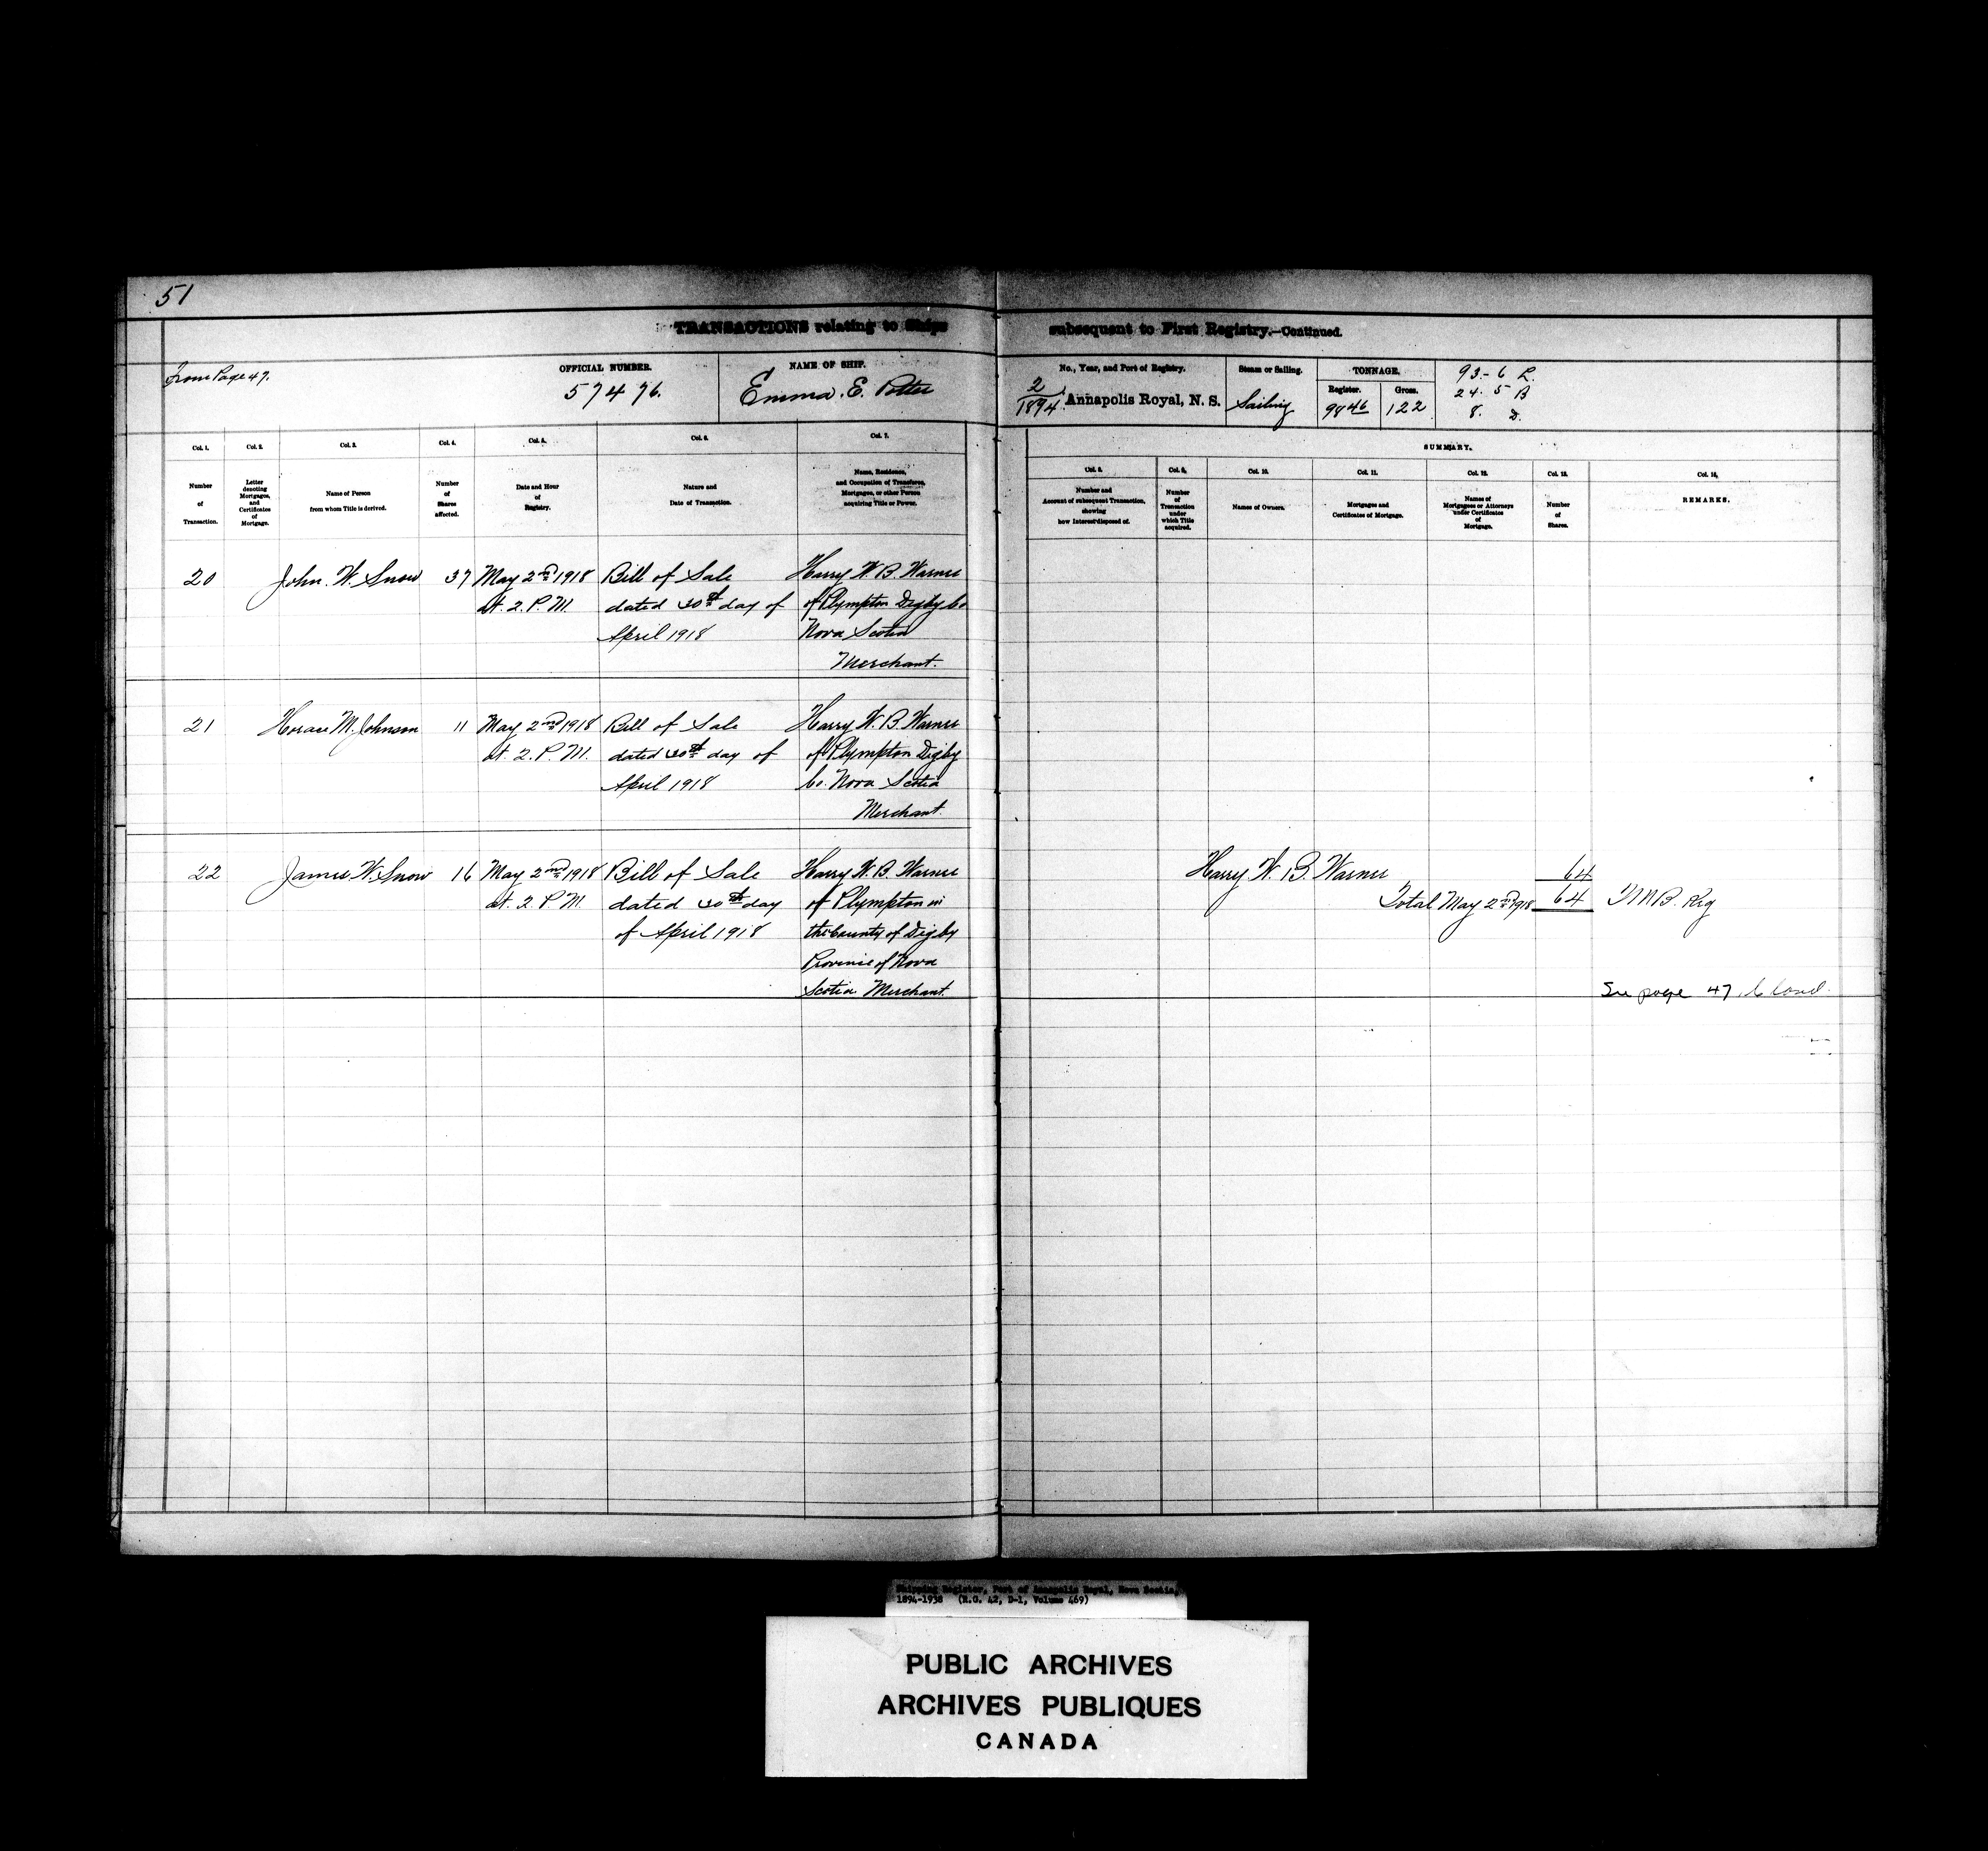 51
TRANSACTIONS relating to Ships subsequent to First Registry.—Continued.
From Page 47.
OFFICIAL NUMBER.
57476.
NAME OF SHIP.
Emma. E. Potter
No., Year, and Port of Registry.
2/1894. Annapolis Royal, N. S.
Steam or Sailing.
Sailing
TONNAGE.
Register.
98 46
Gross.
122
93-6 L.
24. 5 B
8. D.
Col. 1.
Number
of
Transaction.
Col. 2.
Letter
denoting
Mortgages,
and
Certificates
of
Mortgage.
Col. 3.
Name of Person
from whom Title is derived.
Col. 4.
Number
of
Shares
affected.
Col. 5.
Date and Hour
of
Registry.
Col. 6.
Nature and
Date of Transaction.
Col. 7.
Name, Residence,
and Occupation of Transferee,
Mortgagee, or other Person
acquiring Title or Power.
SUMMARY.
Col. 8.
Number and
Account of subsequent Transaction,
showing
how Interest disposed of.
Col. 9.
Number
of
Transaction
under
which Title
acquired.
Col. 10.
Names of Owners.
Col. 11.
Mortgages and
Certificates of Mortgage.
Col. 12.
Names of
Mortgagees or Attorneys
under Certificates
of
Mortgage.
Col. 13.
Number
of
Shares.
Col. 14.
REMARKS.
20 John. W. Snow 37 May 2nd 1918 Bill of Sale Harry W. B. Warner
At. 2. P. M. dated 30th day of of Plympton Digby Co
April 1918 Nova Scotia
Merchant.
21 Horace M. Johnson 11 May 2nd 1918 Bill of Sale Harry W. B. Warner
At. 2. P. M. dated 30th day of of Plympton Digby
April 1918 Co. Nova Scotia
Merchant.
22 James W. Snow 16 May 2nd 1918 Bill of Sale Harry W. B. Warner
At. 2. P. M. dated 30th day of Plympton in
of April 1918 the County of Digby
Province of Nova
Scotia Merchant.
Harry W. B. Warner 64
Total May 2nd 1918 64
See page 47. Closed.
Shipping Register, Port of Annapolis Royal, Nova Scotia,
1894-1938 (R.G. 42, D-1, Volume 469)
PUBLIC ARCHIVES
ARCHIVES PUBLIQUES
CANADA